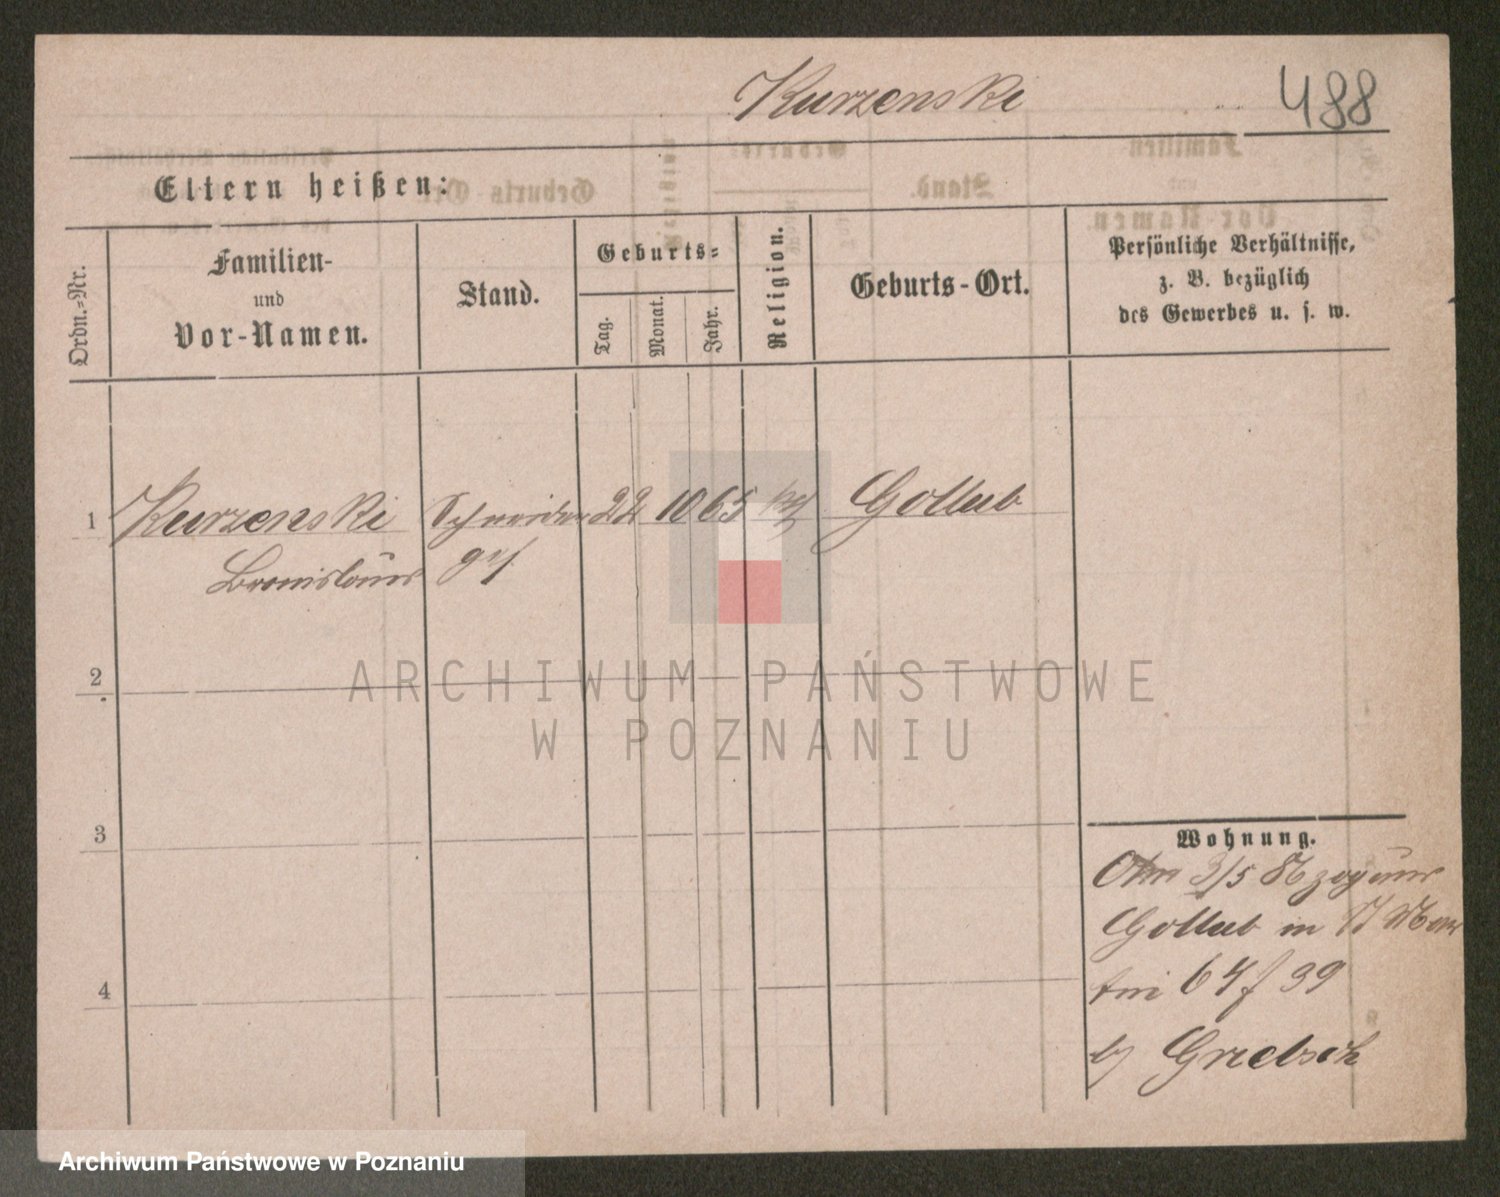 Kurzenski
488
Eltern heißen:
Ordn.-Nr.
Familien-
und
Vor-Namen.
Stand.
Geburts-
Tag.
Monat.
Jahr.
Religion.
Geburts-Ort.
Persönliche Verhältnisse,
z. B. bezüglich
des Gewerbes u. s. w.
1 Kurzenski Schneider 22 10 65 Gollub
Bronislaus
2
3
4
Wohnung.
3/5
Gollub in
64 39
Gretsch
ARCHIWUM PAŃSTWOWE
W POZNANIU
Archiwum Państwowe w Poznaniu